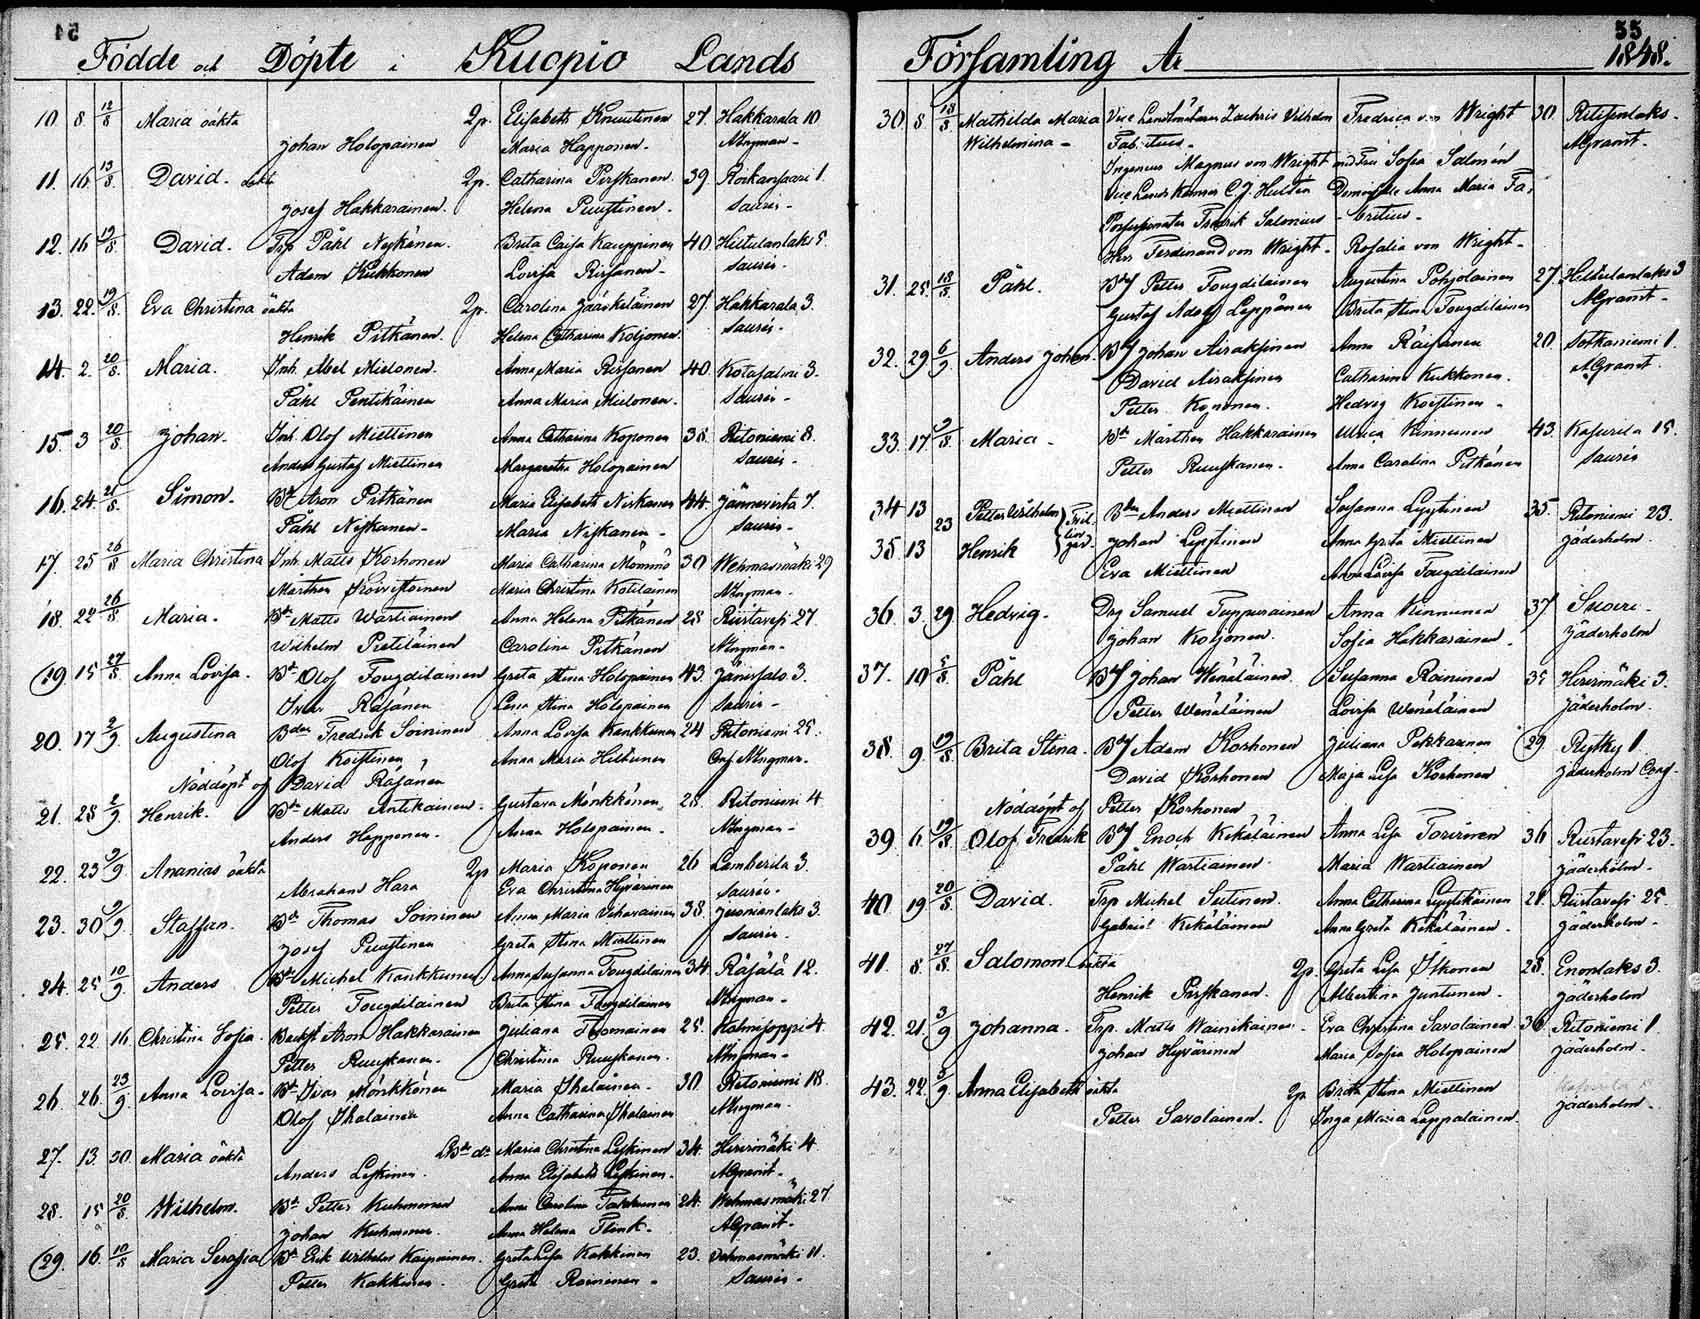 54
Födde och Döpte i Kuopio Lands
10 8 12/8 Maria oäkta 2p. Elisabeth Knuutinen 27. Hakkarala 10
Johan Holopainen Maria Happonen - Mngman -
11. 16 13/8. David. oäkta 2p. Catharina Pirskanen. 39. Roikansaari 1.
Josef Hakkarainen. Helena Puustinen. Saurén -
12. 16 19/8. David. Trp Påhl Nyskänen. Brita Caisa Kauppinen 40. Hiltulanlaks 5.
Adam Kukkonen Lovisa Rissanen - Saurén -
13. 22. 19/8. Eva Christina oäkta 2p. Carolina Jääskeläinen 27 Hakkarala 3.
Henrik Pitkänen. Helena Catharina Koljonen. Saurén -
14. 2. 20/8. Maria. Inh. Abel Mielonen. Anna Maria Rissanen 40. Kotasalmi 3.
Påhl Pentikäinen Anna Maria Mielonen. Saurén -
15. 3 20/8. Johan. Inh. Olof Miettinen Anna Catharina Koponen 38. Ritoniemi 8.
Anders Gustaf Miettinen Margaretha Holopainen Saurén -
16. 24. 21/8. Simon. Bd. Aron Pitkänen Maria Elisabeth Niskanen 44. Jännevirta 7.
Påhl Nyskanen - Maria Nyskanen - Saurén -
17. 25 26/8 Maria Christina Inh Matts Korhonen Maria Catharina Mömmö 30 Wehmasmäki 29
Mårthen Maria Christina Kotiläinen Mngman -
18. 22 26/8 Maria. Bd. Matts Wartiainen Anna Helena Pitkänen 25 Riistavesi 27.
Wilhelm Pietiläinen Carolina Pitkänen Mngman -
19. 15 27/8 Anna Lovisa. Bd. Olof Tougdilainen Greta Stina Holopainen 43. Jänissalo 3.
Ivar Räsänen Lena Stina Holopainen Saurén -
20. 17 2/9. Augustina Bdr Fredrik Soininen Anna Lovisa Kankkunen 24 Ritoniemi 25.
Olof Koistinen Anna Maria Hiltunen Mngman.
Nöddöpt af David Räsänen
21. 28 2/9. Henrik. Bd. Matts Antikainen. Gustava Mönkkönen 28. Ritoniemi 4
Anders Happonen. Anna Holopainen. Mngman -
22. 23 3/9. Ananias oäkta 2p Maria Koponen 26 Lamberila 3.
Abraham Hara Eva Christina Hyvärinen Saurén -
23. 30 3/9. Staffan. Bd. Thomas Soininen Anna Maria Vihavainen 38. Juonionlaks 3.
Josef Puustinen Greta Stina Miettinen Saurén.
24. 25 10/9. Anders Bd. Michel Kankkunen Anna Susanna Tougdilainen 34. Räsälä 12.
Petter Tougdilainen Brita Stina Tougdilainen Mngman -
25. 22. 16. Christina Sofia. Backst Aron Hakkarainen Juliana Tuomainen 25. Kalmisoppi 4.
Petter Ruuskanen. Christina Ruuskanen. Mngman -
26. 26. 23/9. Anna Lovisa. Bd. Ivar Mönkkönen Maria Ihalainen. 30. Ritoniemi 18.
Olof Ihalainen Anna Catharina Ihalainen Mngman.
27. 13. 30. Maria oäkta Maria Christina Leskinen 34. Hirvimäki 4
Anders Leskinen. Anna Elisabeth Leskinen. AGranit -
28. 15 20/8 Wilhelm. Bd. Petter Kuhmonen Anna Carolina Takkunen 24. Wehmasmäki 27.
Johan Kuhmonen Anna Helena Flink - AGranit -
29. 16. 10/8 Maria Serafia Bd. Erik Wilhelm Karppainen. Greta Lisa Kakkinen 23. Vehmasmäki 11.
Petter Kakkinen. Greta Roininen - Saurén -
55
Församling År 1848.
30 8. 18/8 Mathilda Maria Vice Landtmätaren Zachris Vilhelm Fredrica von Wright 30. Ritisenlaks -
Wilhelmina - Fabritius - AGranit.
Ingenieur Magnus von Wright med Fru Sofia Salmén
Vice Lands Kamrer C J Hultén Demoiselle Anna Maria Fa-
Fredrik Salonius - britius -
Herr Ferdinand von Wright - Rosalia von Wright -
31. 25. 18/8 Påhl. Bdf Petter Tougdilainen Augustina Pohjolainen 27. Hiltulanlaks 3
Gustaf Adolf Leppänen Brita Stina Tougdilainen AGranit -
32. 29 6/9 Anders Johan. Bdf Johan Airaksinen Anna Räisänen 20. Sotkaniemi 1.
David Airaksinen Catharina Kukkonen. AGranit.
Petter Kononen. Hedvig Koistinen -
33. 17. 9/8 Maria - Bd Mårthen Hakkarainen Ulrica Kinnunen 43. Kasurila 15.
Petter Ruuskanen. Anna Carolina Pitkänen Saurén
34 13 23 Petter Wilhelm Tvillingar Bdr Anders Miettinen Susanna Lyytinen 35. Ritoniemi 23.
35. 13 Henrik Johan Lyytinen Anna Greta Miettinen Jäderholm.
Eva Miettinen Anna Lovisa Tougdilainen
36. 3. 29 Hedvig. Drg Samuel Tuppurainen Anna Kinnunen 37 Suovi -
Johan Koljonen. Sofia Hakkarainen. Jäderholm
37. 10 5/8 Påhl Bdf Johan Wenäläinen. Susanna Roininen 35 Hirvimäki 3.
Petter Wenäläinen Lovisa Wenäläinen Jäderholm.
38. 9. 19/8 Brita Stina. Bdf Adam Korhonen Juliana Pekkarinen 29 Rytky 1.
David Korhonen Maja Lisa Korhonen Jäderholm
Nöddöpt af Petter Korhonen
39. 6 19/8 Olof Fredrik Bdf Enoch Kekäläinen Anna Lisa Toivinen 36 Riistavesi 23.
Påhl Wartiainen Maria Wartiainen Jäderholm -
40. 19. 20/8 David. Trp Michel Sutinen. Anna Catharina Lyytikäinen 21. Riistavesi 25.
Gabriel Kekäläinen Anna Greta Kekäläinen. Jäderholm -
41. 8. 27/8. Salomon oäkta 2p. Greta Lisa Itkonen 28. Enonlaks 3.
Henrik Pirskanen. Albertina Juntunen. Jäderholm
42. 21. 3/9 Johanna. Trp. Matts Wainikainen. Eva Christina Savolainen 36. Ritoniemi 1.
Johan Hyvärinen Maria Sofia Holopainen Jäderholm -
43. 22. 3/9 Anna Elisabeth oäkta 2p Brita Stina Miettinen Kasurila
Petter Savolainen. Inga Maria Lappalainen. Jäderholm -